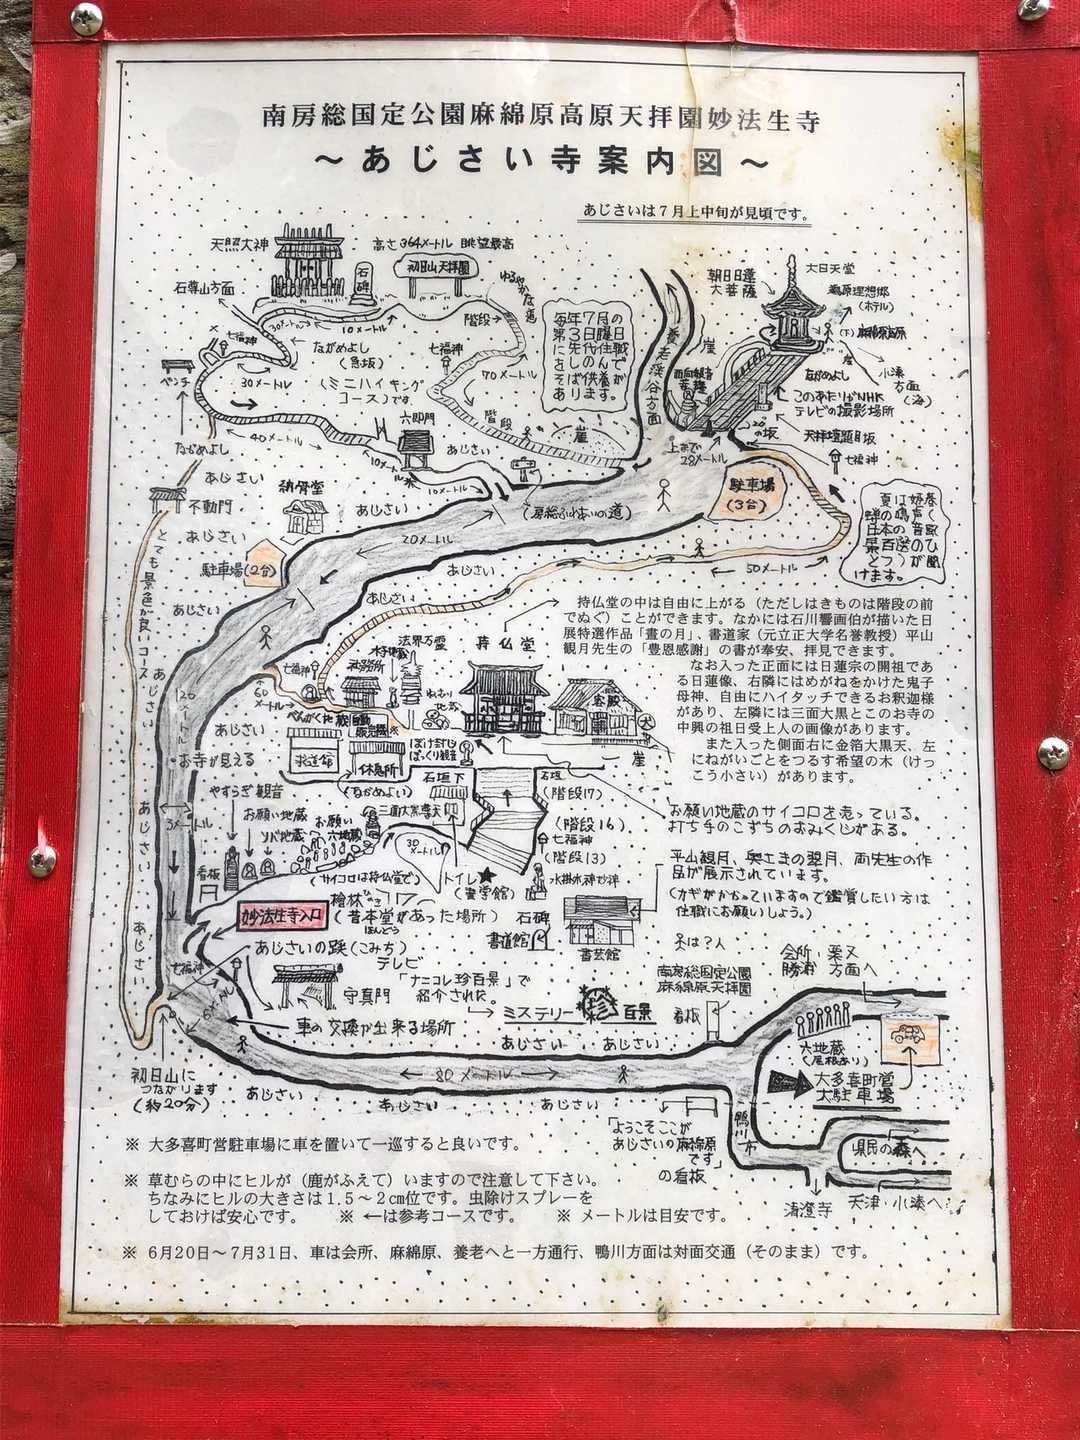 南房総国定公園麻綿原高原天拝園妙法生寺
～あじさい寺案内図～
あじさいは7月上中旬が見頃です。
天照大神
石碑
高さ364メートル 眺望最高
初日山天拝園
ゆるやかな道
石尊山方面
30メートル
10メートル
階段
七福神
ながめよし
(急坂)
七福神
ベンチ
30メートル
(ミニハイキング
コース)です
70メートル
階段
六即門
40メートル
10メートル
10メートル
あじさい
崖
毎年7月の
第3日曜日
に先代住職
をしのんで
そば供養が
あります。
養老渓谷方面
崖
朝日日蓮
大菩薩
大日天堂
麻原理想郷
(ホテル)
麻綿原高原
崖
小湊
方面
(海)
ながめよし
このあたりがNHK
テレビの撮影場所
天拝壇題目坂
七福神
上まで
28メートル
駐車場
(3台)
ながめよし
あじさい
不動門
納骨堂
あじさい
あじさい
駐車場(2台)
(房総ふれあいの道)
20メートル
あじさい
50メートル
夏は姫春
蝉の鳴く
日本の音風
景百選のひ
とつ)が聞
けます。
とても景色が良いコース
あじさい
あじさい
持仏堂の中は自由に上がる(ただしはきものは階段の前
でぬぐ)ことができます。なかには石川響画伯が描いた日
展特選作品「晝の月」、書道家(元立正大学名誉教授)平山
観月先生の「豊恩感謝」の書が奉安、拝見できます。
なお入った正面には日蓮宗の開祖であ
る日蓮像、右隣にはめがねをかけた鬼子
母神、自由にハイタッチできるお釈迦様
があり、左隣には三面大黒とこのお寺の
中興の祖日受上人の画像があります。
また入った側面右に金箔大黒天、左
にねがいごとをつるす希望の木(けっ
こう小さい)があります。
法界万霊
持仏堂
水子地蔵
七福神
社務所
客殿
犬
60
メートル
自動
販売機
求道館
休息所
(ながめよい)
ぼけ封じ
ぽっくり観音
崖
石垣下
石垣
(階段17)
(階段16)
七福神
(階段13)
水掛水神妙渧
あじさい
120メートル
お寺が見える
やすらぎ観音
お願い地蔵
ソバ地蔵
お願い
六地蔵
三面大黒尊天
30メートル
あじさい
3メートル
看板
(サイコロは持仏堂で)
トイレ★
(書学館)
お願い地蔵のサイコロを売っている。
打ち手のこずちのおみくじがある。
平山観月、奥さまの翠月、両先生の作
品が展示されています。
(カギがかかっていますので鑑賞したい方は
住職にお願いしょう。)
妙法生寺入口
檜林
ひのき
(昔本堂があった場所)
ほんどう
石碑
書道館
書芸館
あじさい
あじさいの蹊(こみち)
七福神
守真門
テレビ
「ナニコレ珍百景」で
紹介された。
ミステリー珍百景
車の交換が出来る場所
は?人
南房総国定公園
麻綿原天拝園
看板
会所 粟又
勝浦 方面へ
六地蔵
(屋根あり)
大多喜町営
大駐車場
あじさい
あじさい
80メートル
初日山に
つながります
(約20分)
あじさい
あじさい
あじさい
「ようこそここが
あじさいの麻綿原
です」
の看板
鴨川市
県民の森へ
清澄寺
天津・小湊へ
※ 大多喜町営駐車場に車を置いて一巡すると良いです。
※ 草むらの中にヒルが(鹿がふえて)いますので注意して下さい。
ちなみにヒルの大きさは1.5～2㎝位です。虫除けスプレーを
しておけば安心です。 ※ ←は参考コースです。 ※ メートルは目安です。
※ 6月20日～7月31日、車は会所、麻綿原、養老へと一方通行、鴨川方面は対面交通(そのまま)です。